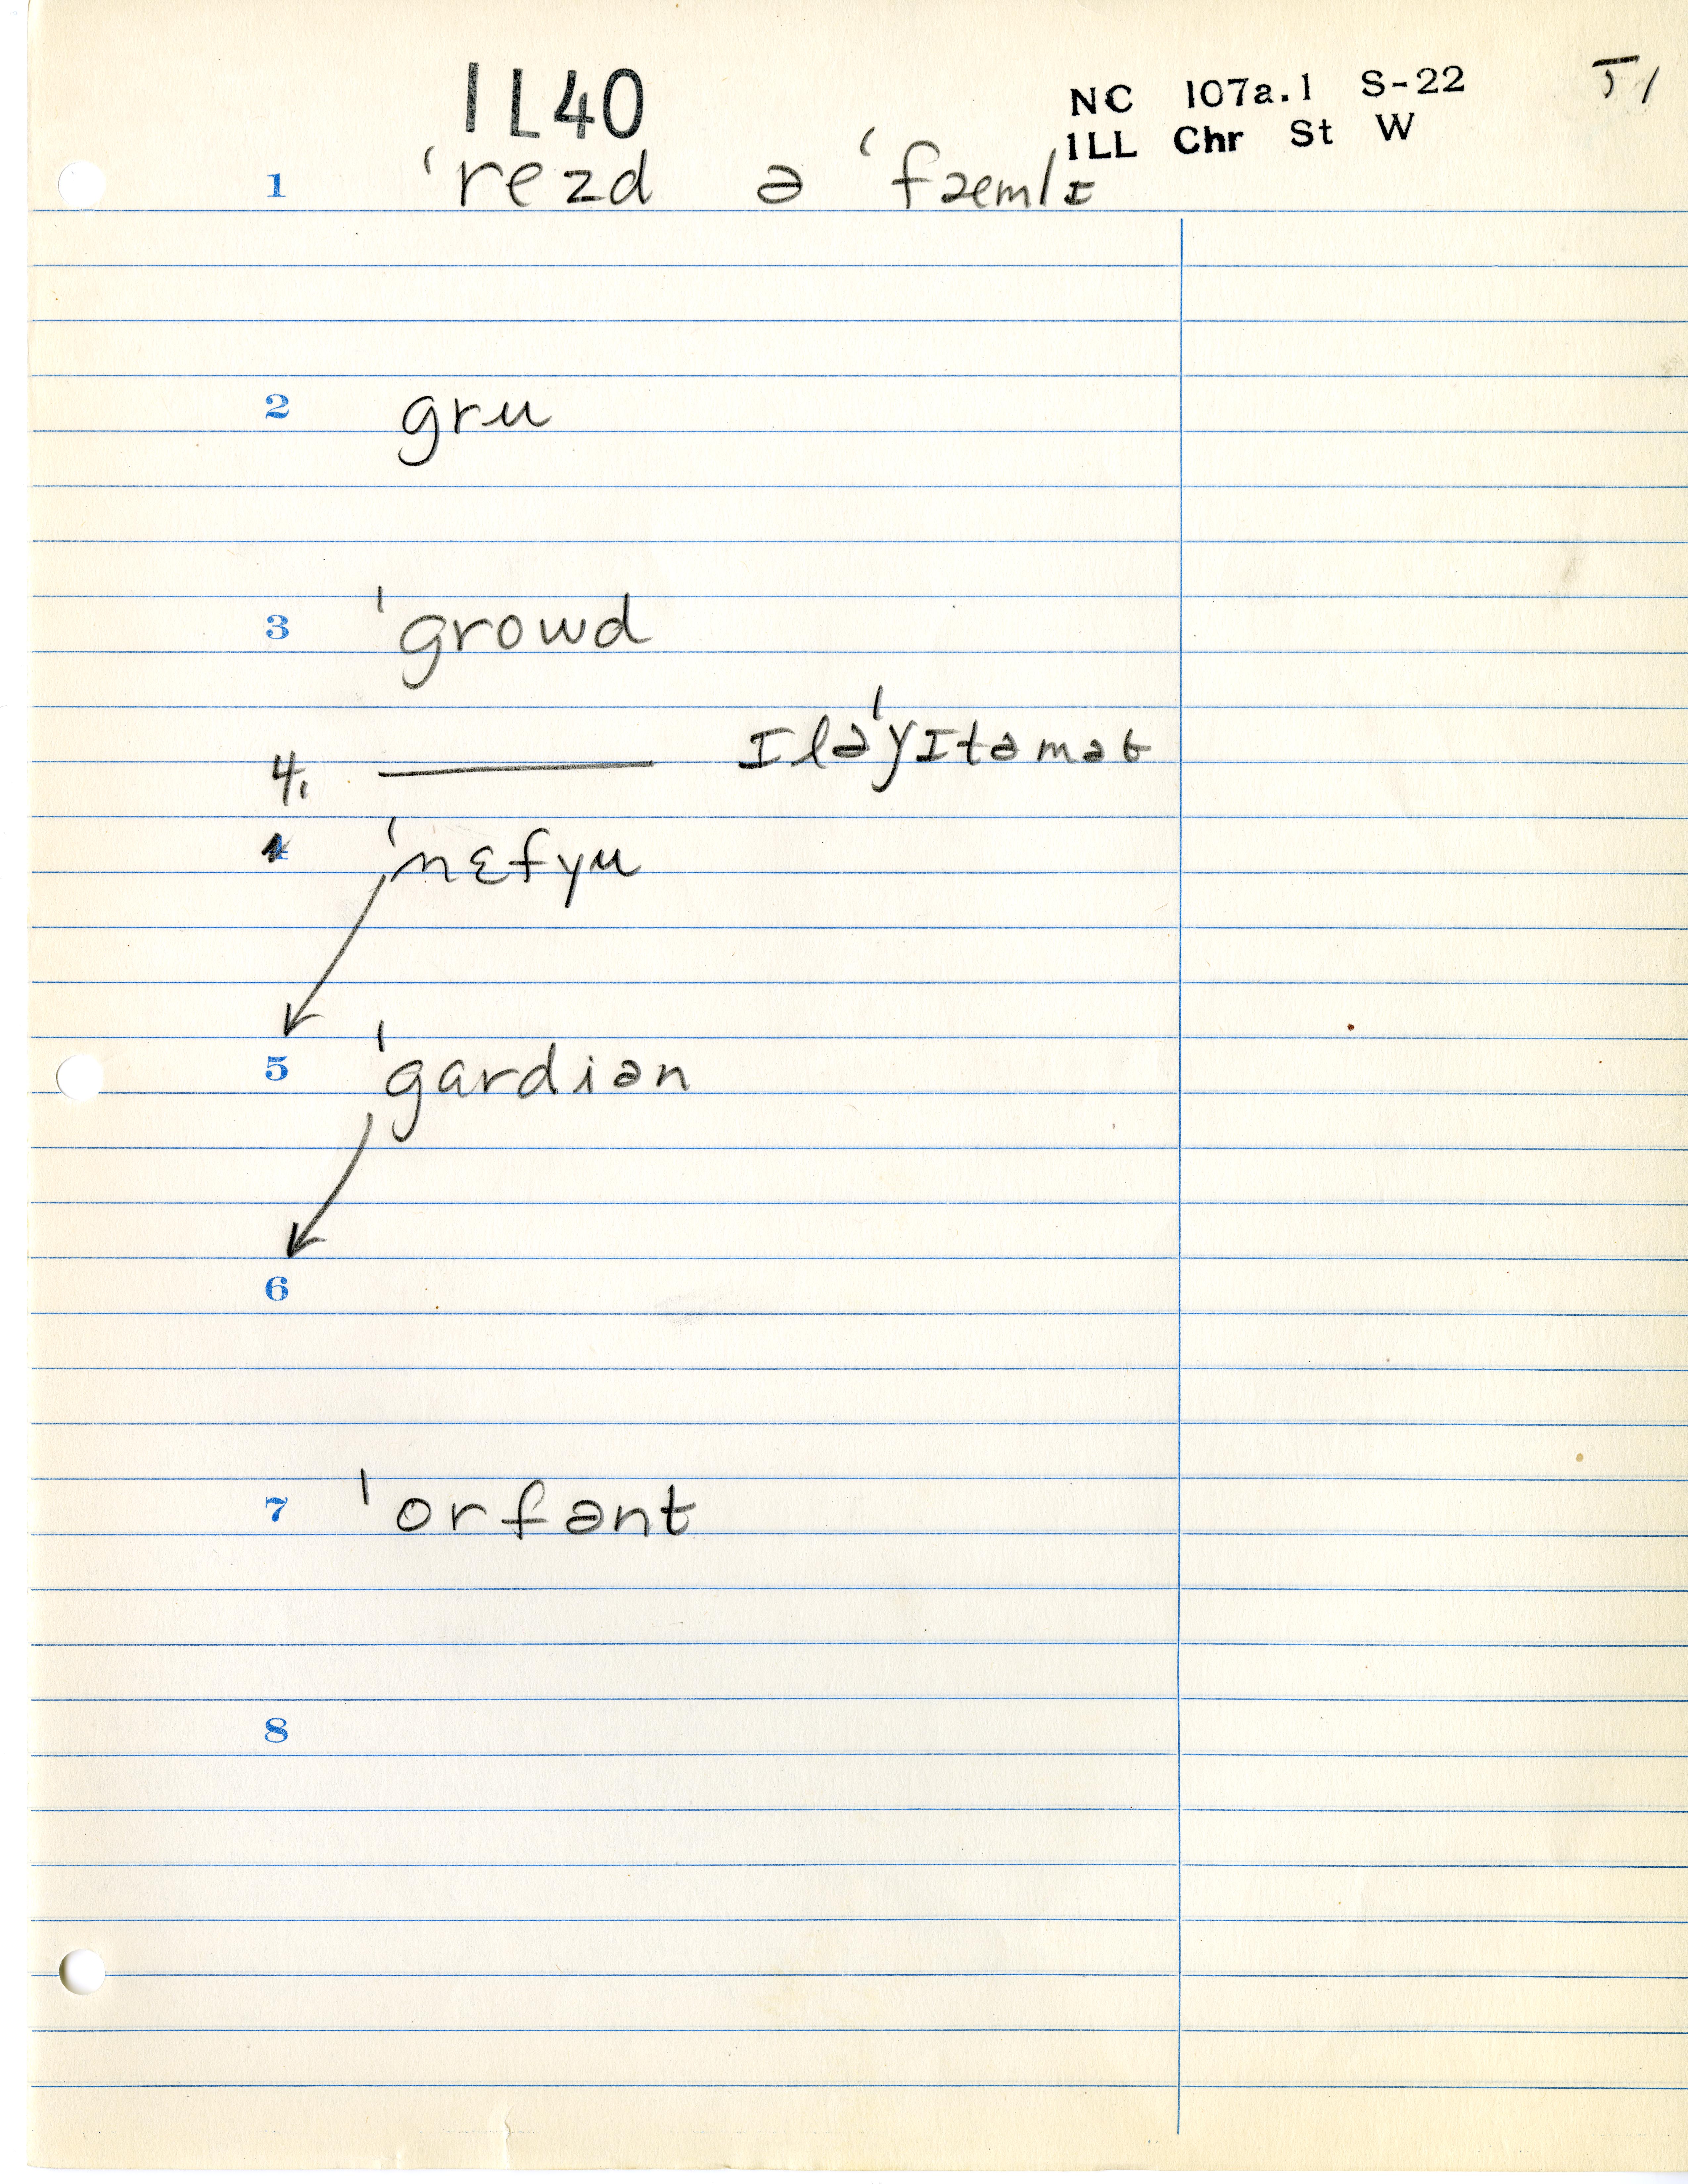 1L40
NC 107a.1 S-22
1LL Chr St W
1 ˈrezd ə ˈfæmlɪ
2 gru
3 ˈgrowd
4. ——— ɪləˈyɪtəmət
4 ˈnɛfyu
5 ˈgardiən
6
7 ˈorfənt
8